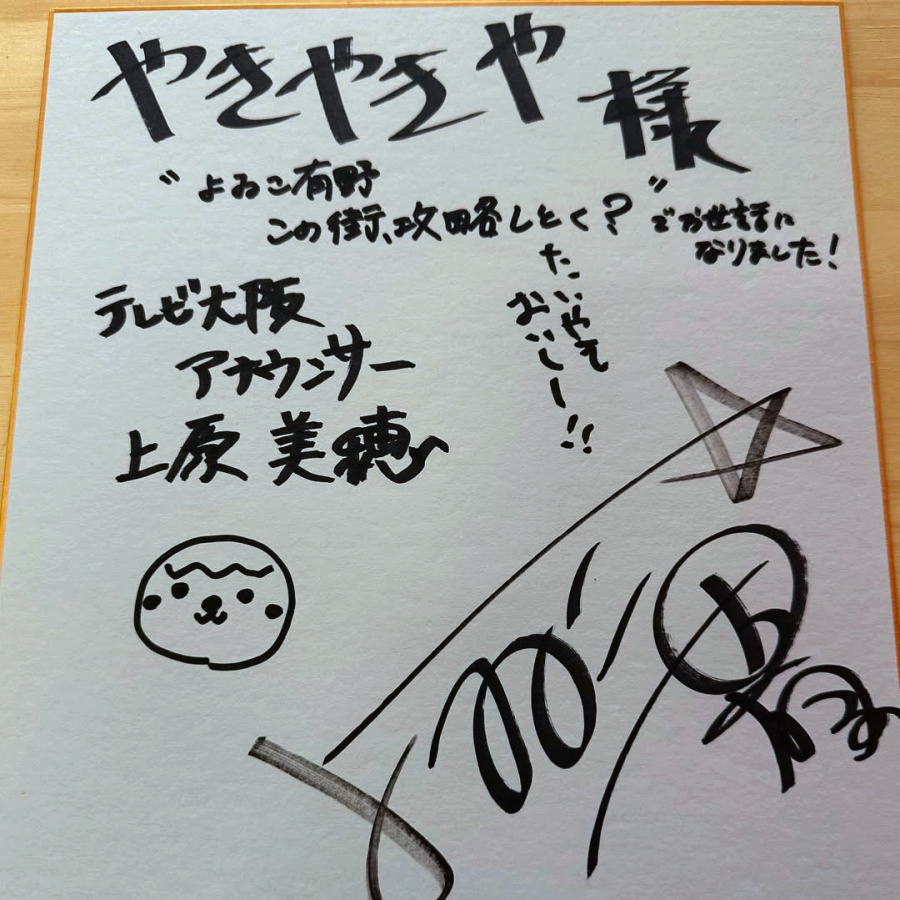 やきやきや 様
"よゐこ有野
この街、攻略しとく?"でお世話に
なりました!
テレビ大阪
アナウンサー
上原 美穂
たいやき
おいしー!!